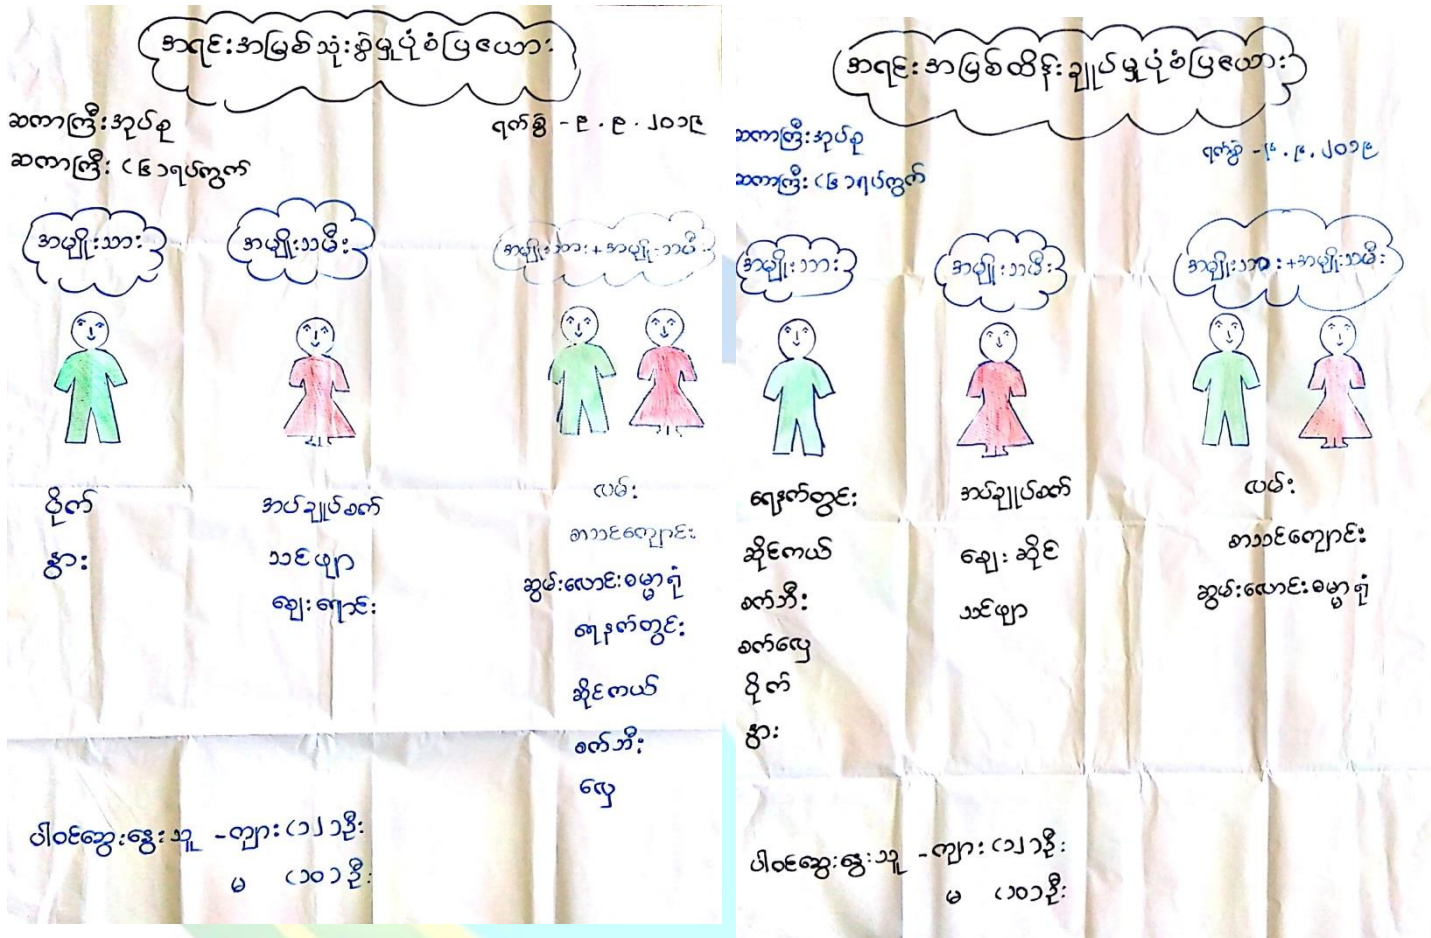 အရင်းအမြစ်သုံးစွဲမှုပုံစံပြဇယား
ဆကာကြီးအုပ်စု
ရက်စွဲ - ၉ . ၉ . ၂၀၁၉
ဆကာကြီး (၆) ရပ်ကွက်
အမျိုးသား
အမျိုးသမီး
အမျိုးသား + အမျိုးသမီး
ဝိုက်
နွား
အပ်ချုပ်စက်
သင်ဖျာ
ဈေးရောင်း
လမ်း
စာသင်ကျောင်း
ဆွမ်းလောင်းဓမ္မာရုံ
ရေနက်တွင်း
ဆိုင်ကယ်
စက်ဘီး
လှေ
ပါဝင်ဆွေးနွေးသူ - ကျား (၁၂) ဦး
မ (၁၀) ဦး
အရင်းအမြစ်ထိန်းချုပ်မှုပုံစံပြဇယား
ဆကာကြီးအုပ်စု
ရက်စွဲ - ၉ . ၉ . ၂၀၁၉
ဆကာကြီး (၆) ရပ်ကွက်
အမျိုးသား
အမျိုးသမီး
အမျိုးသား + အမျိုးသမီး
ရေနက်တွင်း
ဆိုင်ကယ်
စက်ဘီး
စက်လှေ
ဝိုက်
နွား
အပ်ချုပ်စက်
ဈေးဆိုင်
သင်ဖျာ
လမ်း
စာသင်ကျောင်း
ဆွမ်းလောင်းဓမ္မာရုံ
ပါဝင်ဆွေးနွေးသူ - ကျား (၁၂) ဦး
မ (၁၀) ဦး